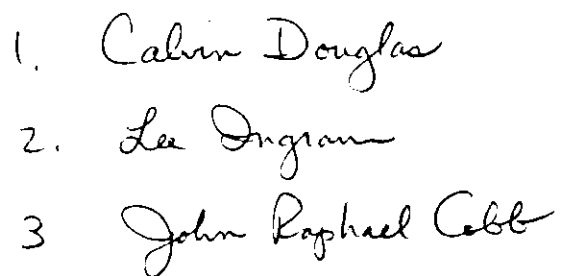 1. Calvin Douglas
2. Lee Ingram
3 John Raphael Cobb